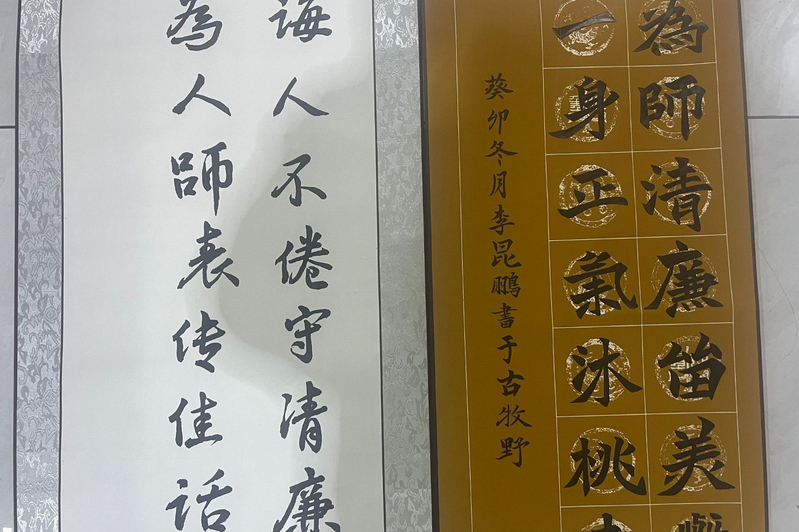 為師清廉留美
一身正氣沐桃
葵卯冬月李昆鹏書于古牧野
诲人不倦守清廉
為人師表传佳话